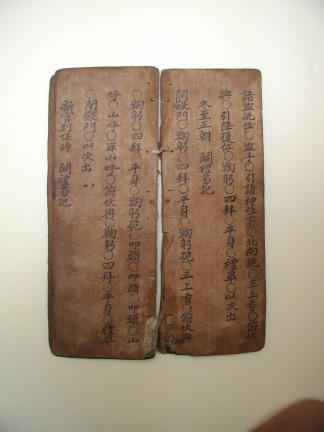 詣盥洗位○盥手○引詣神位前○北向跪○三上香○俯伏
興○引降復位○鞠躬○四拜○平身○禮畢○以次出
冬至正朝 闕禮笏記
開殿門○鞠躬○四拜○平身○鞠躬跪○三上香○俯伏興
○鞠躬○四拜○平身○鞠躬跪○叩頭○叩頭○叩頭○山
呼○山呼○再山呼○俯伏興○鞠躬○四拜○平身○禮畢
○閉殿門○以次出
新官到任時 闕禮笏記